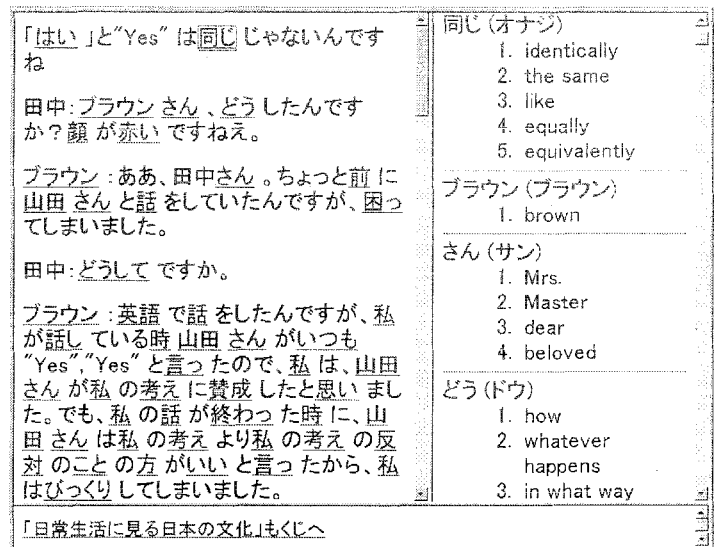 「はい 」と"Yes" は同じ じゃないんです
ね
田中:ブラウン さん 、どう したんです
か?顔 が赤い ですねえ。
ブラウン :ああ、田中さん 。ちょっと前 に
山田 さん と話 をしていたんですが、困っ
てしまいました。
田中:どうして ですか。
ブラウン :英語 で話 をしたんですが、私
が話し ている時 山田 さん がいつも
"Yes","Yes" と言っ たので、私 は、山田
さん が私 の考え に賛成 したと思い まし
た。でも、私 の話 が終わっ た時 に、山
田 さん は私 の考え より私 の考え の反
対 のこと の方 がいい と言っ たから、私
はびっくり してしまいました。
同じ (オナジ)
1. identically
2. the same
3. like
4. equally
5. equivalently
ブラウン (ブラウン)
1. brown
さん (サン)
1. Mrs.
2. Master
3. dear
4. beloved
どう (ドウ)
1. how
2. whatever
happens
3. in what way
「日常生活に見る日本の文化」もくじへ